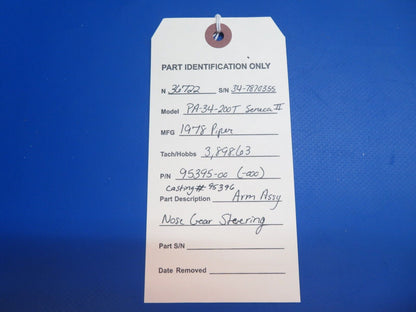 PART IDENTIFICATION ONLY
N 36722 S/N 34-7870355
Model PA-34-200T Seneca II
MFG 1978 Piper
Tach/Hobbs 3,898.63
P/N 95395-00 (-000)
Casting# 95396
Part Description Arm Assy
Nose Gear Steering
Part S/N
Date Removed